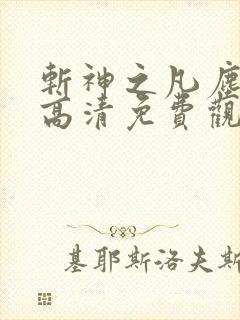 斬神之凡塵
高清免費觀
基耶斯洛夫斯